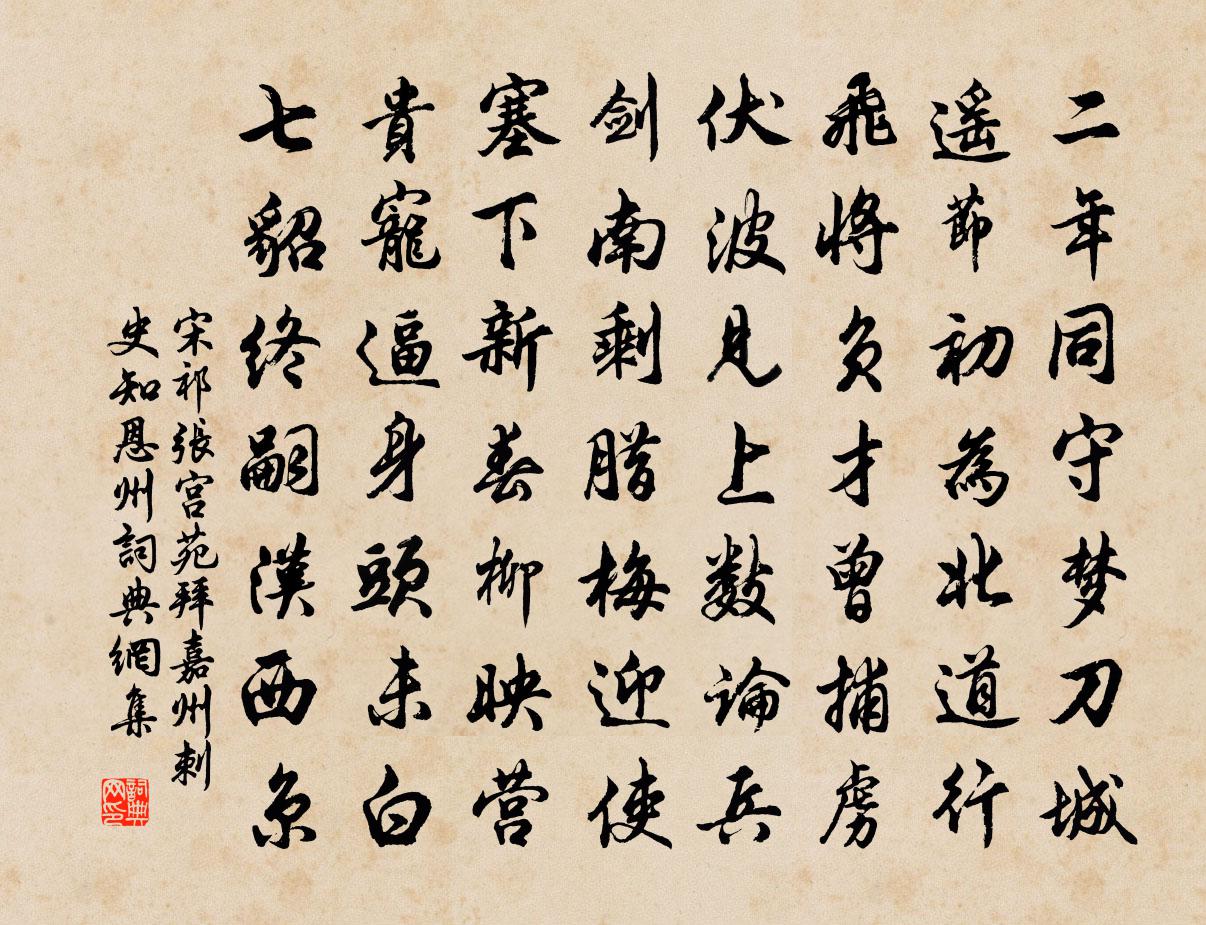 二年同守梦刀城
遥節初為北道行
飛將负才曾捕虜
伏波見上数論兵
剑南剩腊梅迎使
塞下新春柳映营
貴寵逼身頭未白
七貂终嗣漢西京
宋祁張宫苑拜嘉州刺
史知恩州詞典網集
詞典网印